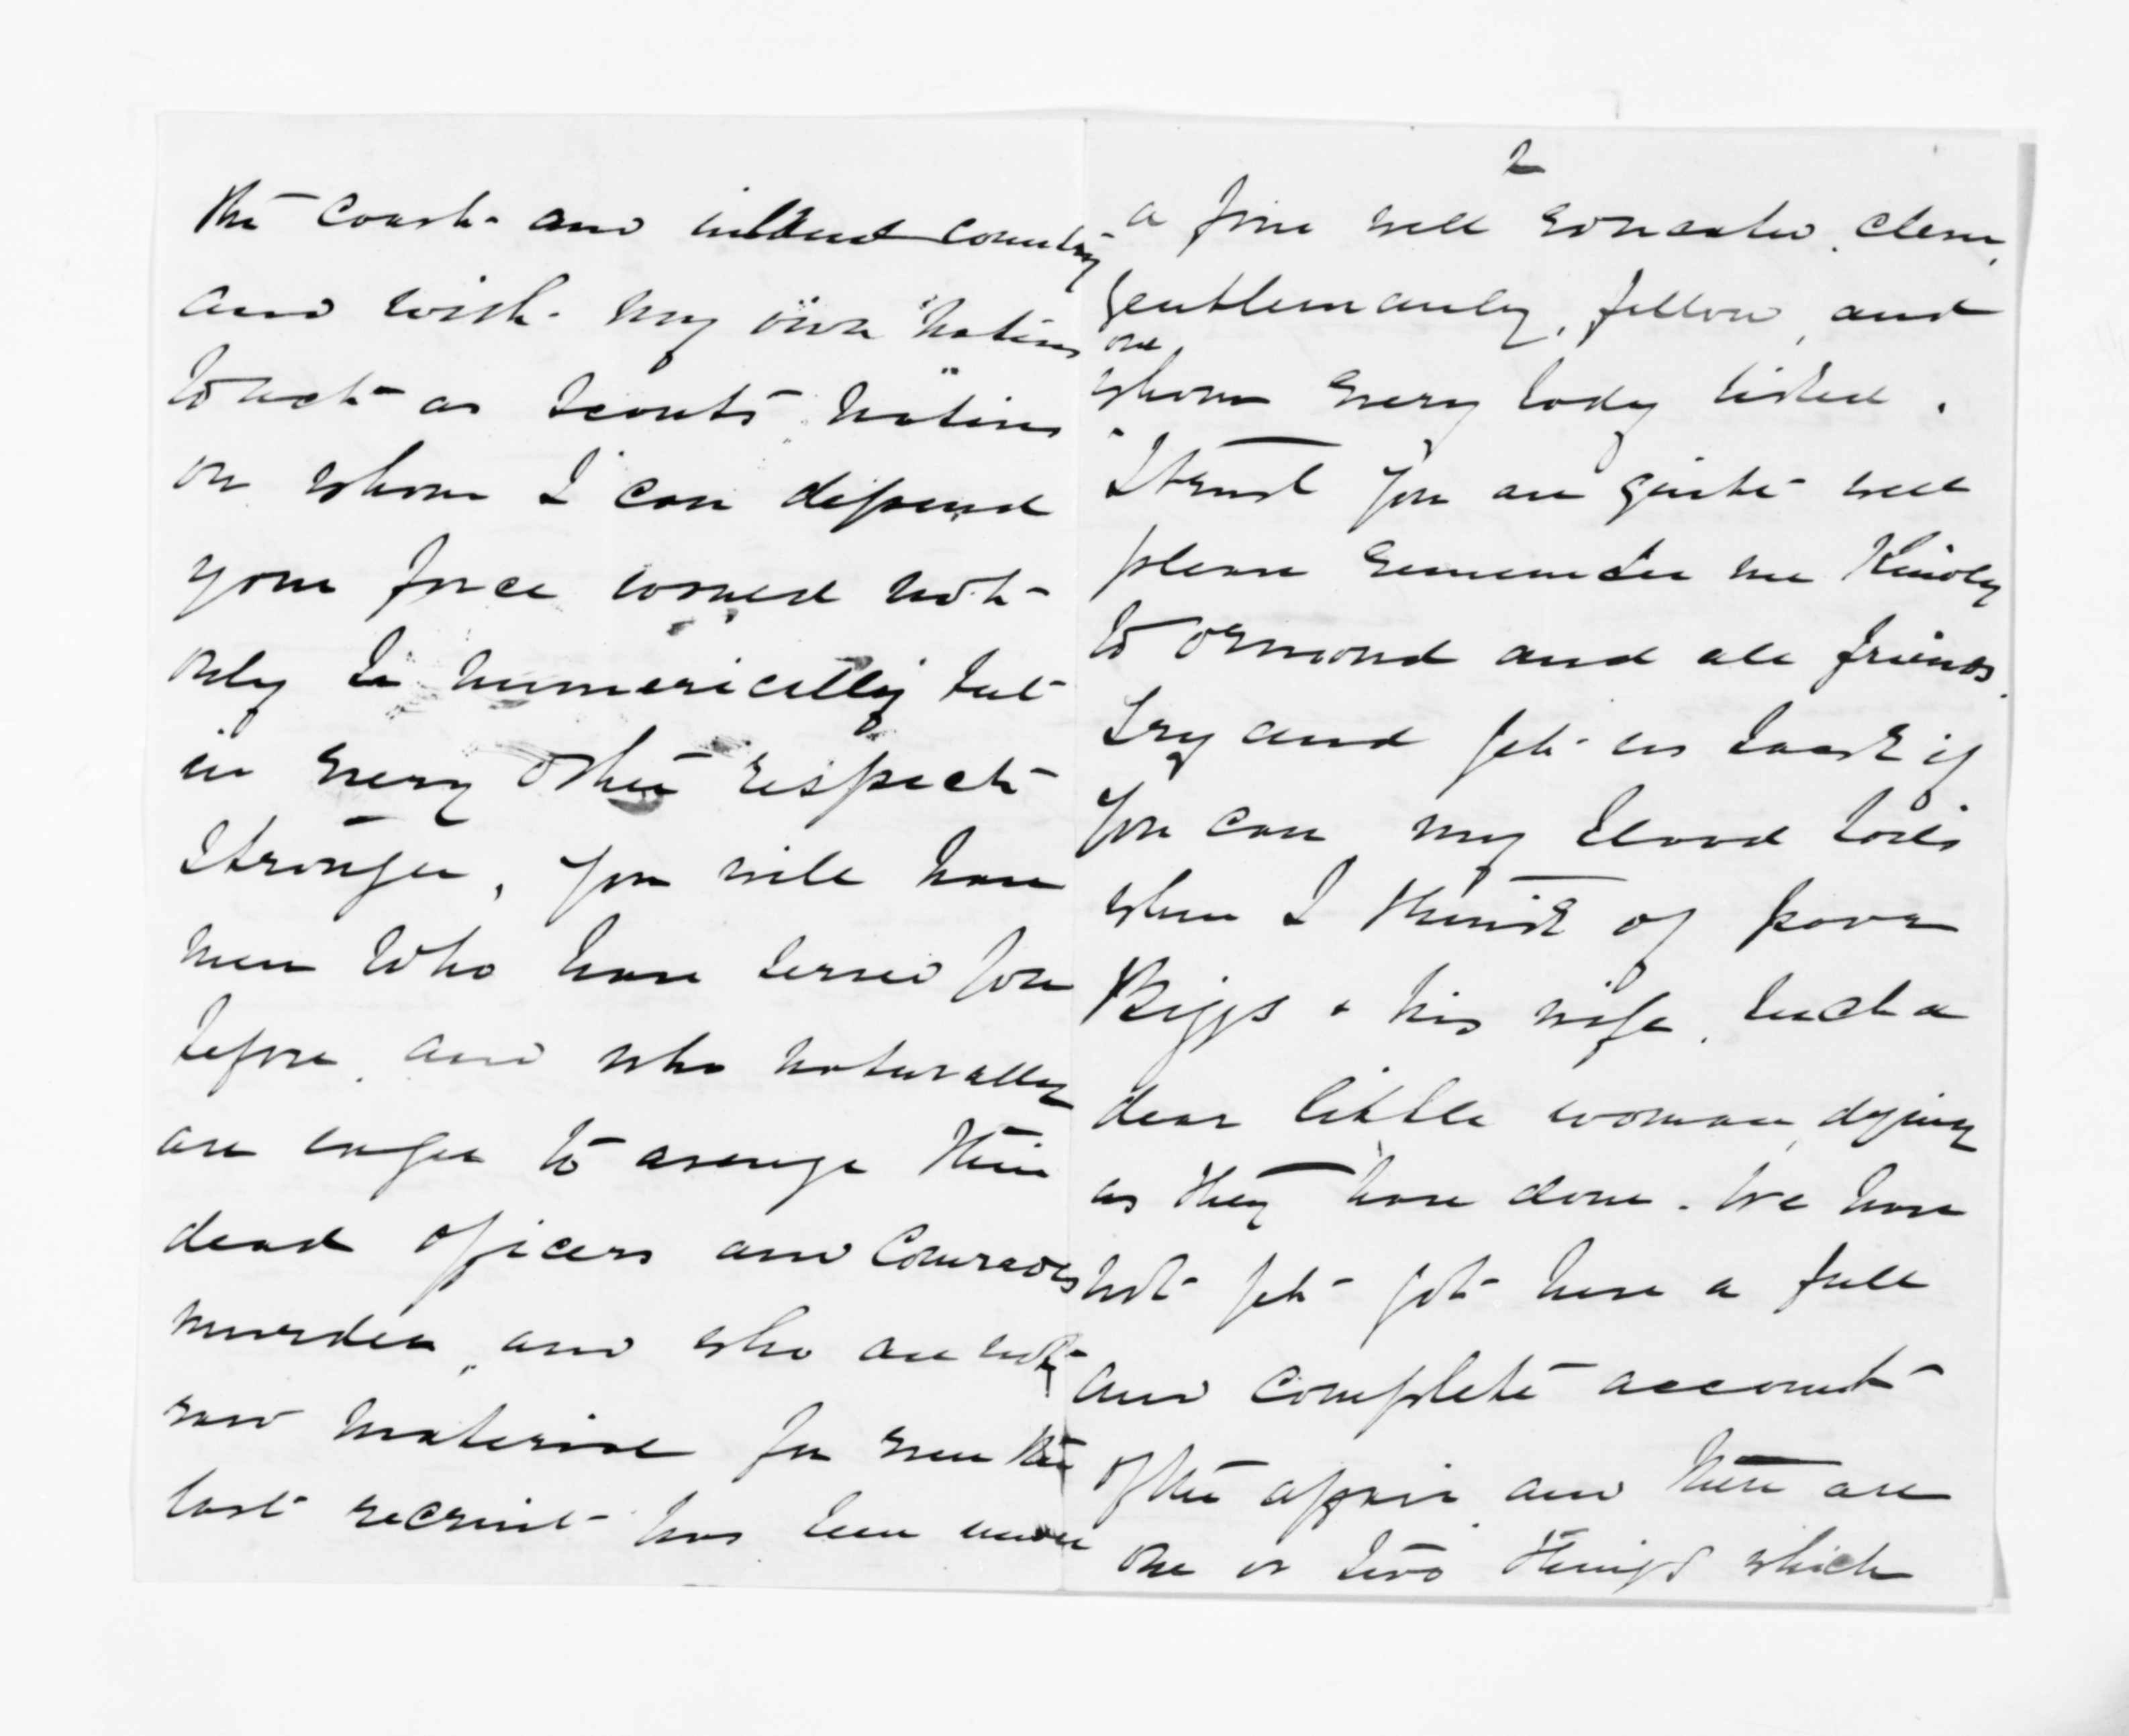 the coast and inland country
and with my own natives
to act as scouts, natives
on whom I can depend
your force would not
only be numerically but
in every other respect
stronger, you will have
men who have served you
before, and who naturally
are eager to avenge their
dead officers and comrades
murder, and who are not
raw material for even the
last recruit has been under
2
a fine well educated, clever,
gentlemanly, fellow, and
one
whom every body liked.
I trust you are quite well
please remember me kindly
to Ormond and all friends.
Try and get us back if
you can my blood boils
when I think of poor
Biggs & his wife, such a
dear little woman, dying
as they have done. We have
not yet got here a full
and complete account
of the affair and there are
one or two things which